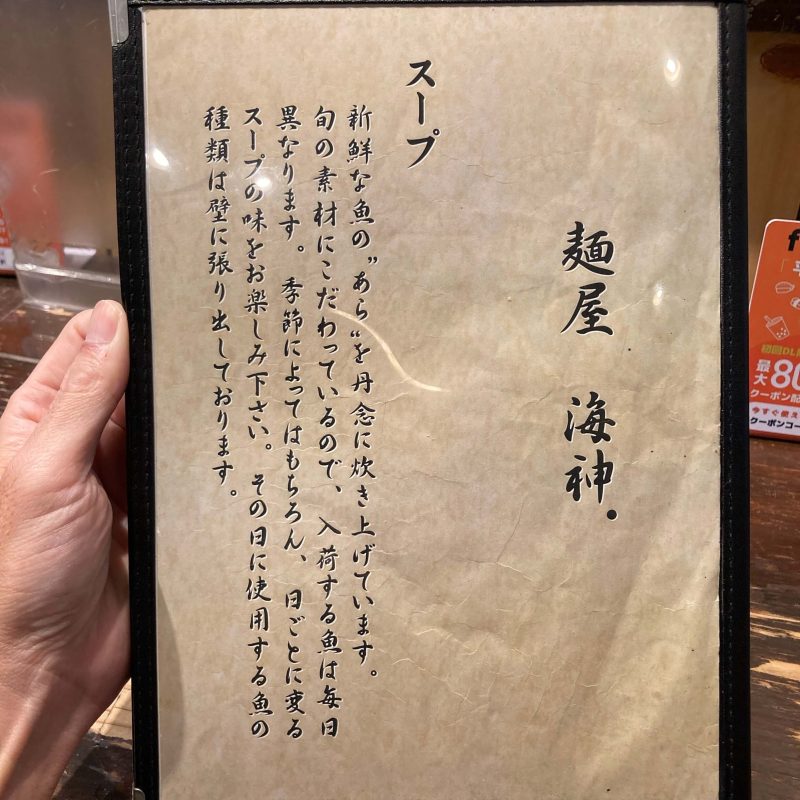 麺屋 海神.
スープ
新鮮な魚の"あら"を丹念に炊き上げています。
旬の素材にこだわっているので、入荷する魚は毎日
異なります。季節によってはもちろん、日ごとに変る
スープの味をお楽しみ下さい。その日に使用する魚の
種類は壁に張り出しております。
f
初回DL
最大80
クーポン配
今すぐ使え
クーポンコー